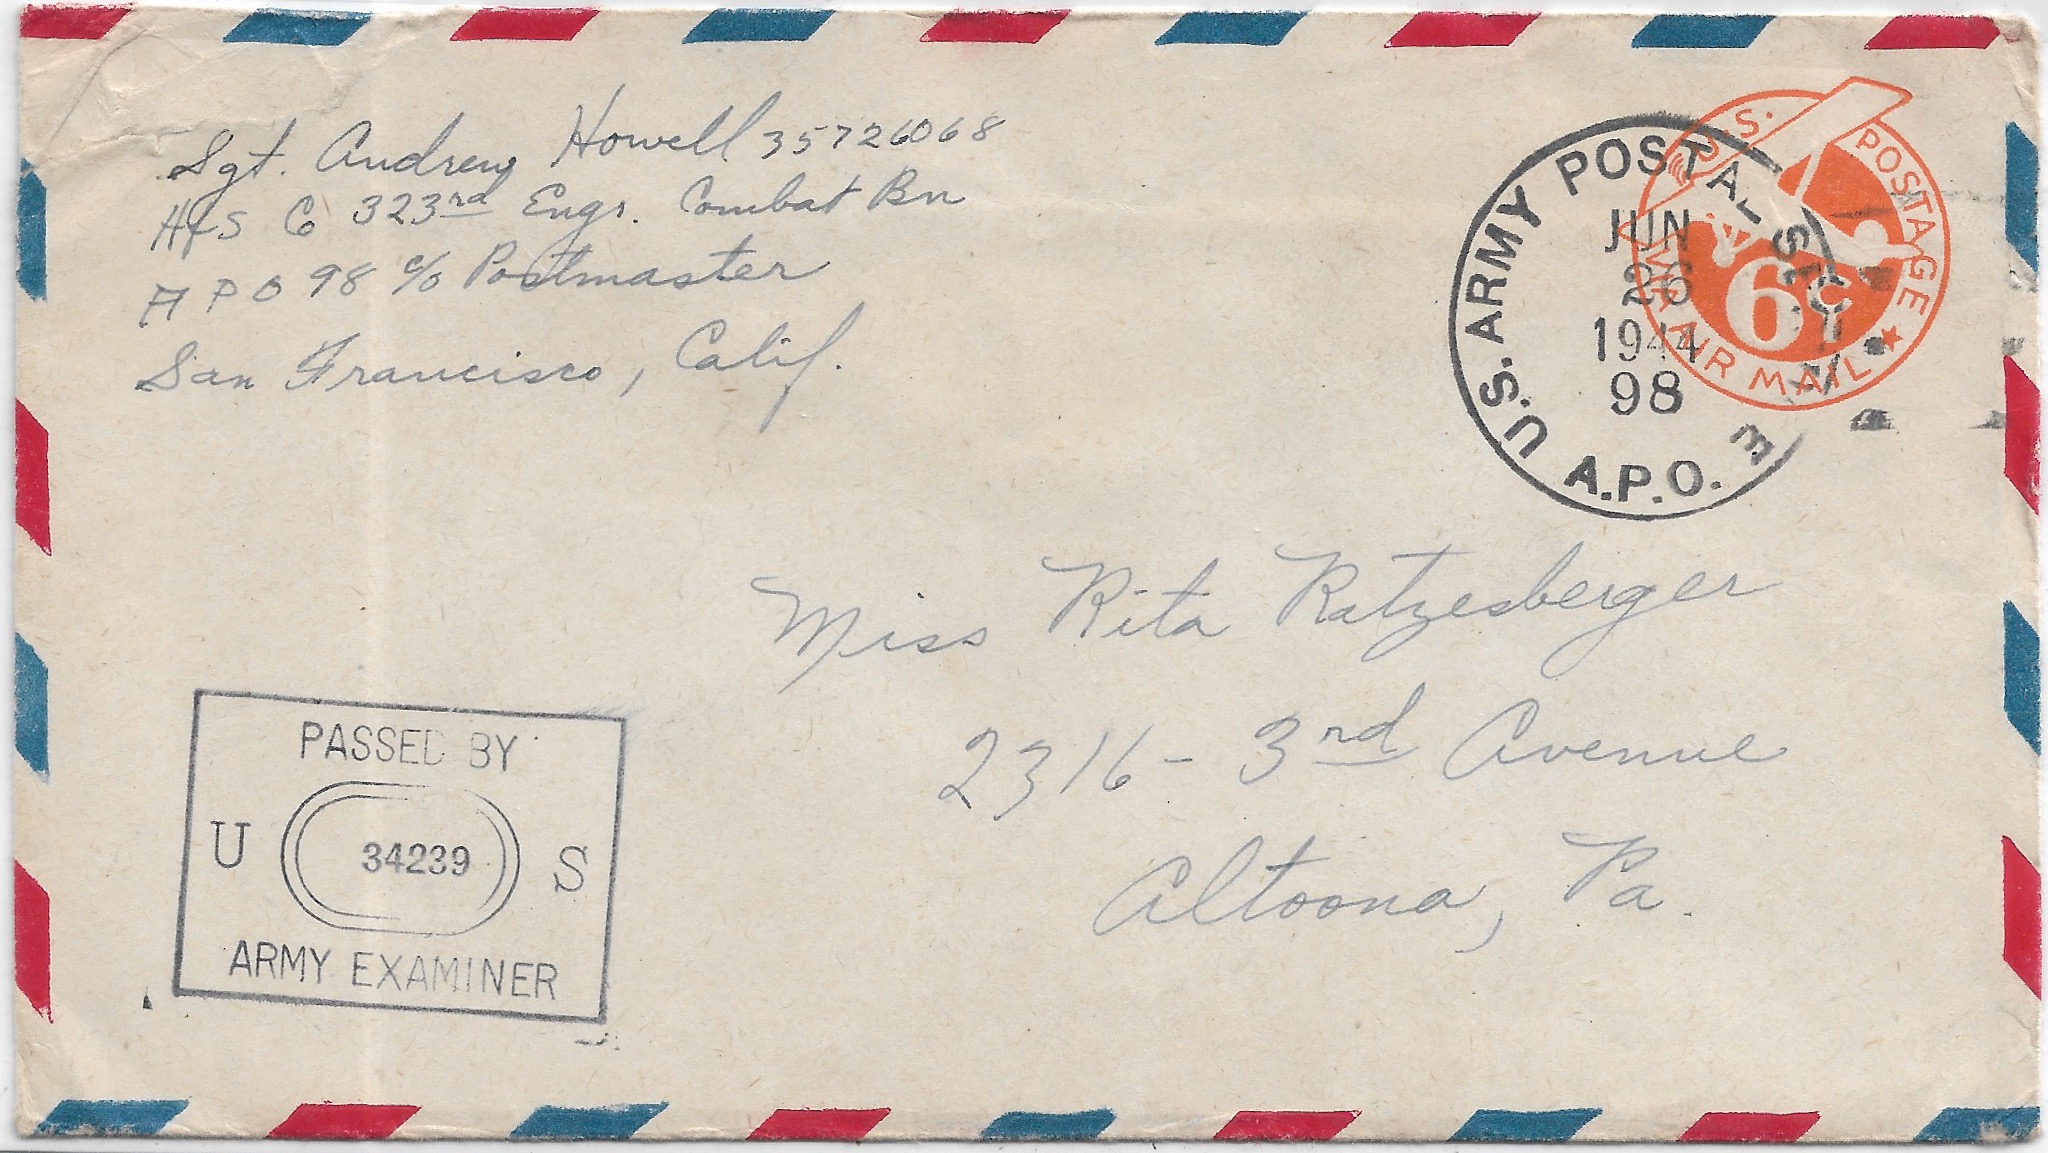 Sgt. Andrew Howell 35726068
H&S Co 323rd Engr. Combat Bn
A P O 98 c/o Postmaster
San Francisco, Calif.
U.S. ARMY POSTAL SERVICE
JUN
26
1944
98
A.P.O.
U.S. POSTAGE
VIA AIR MAIL
6¢
Miss Rita Ratzesberger
2316 - 3rd Avenue
Altoona, Pa.
PASSED BY
U 34239 S
ARMY EXAMINER